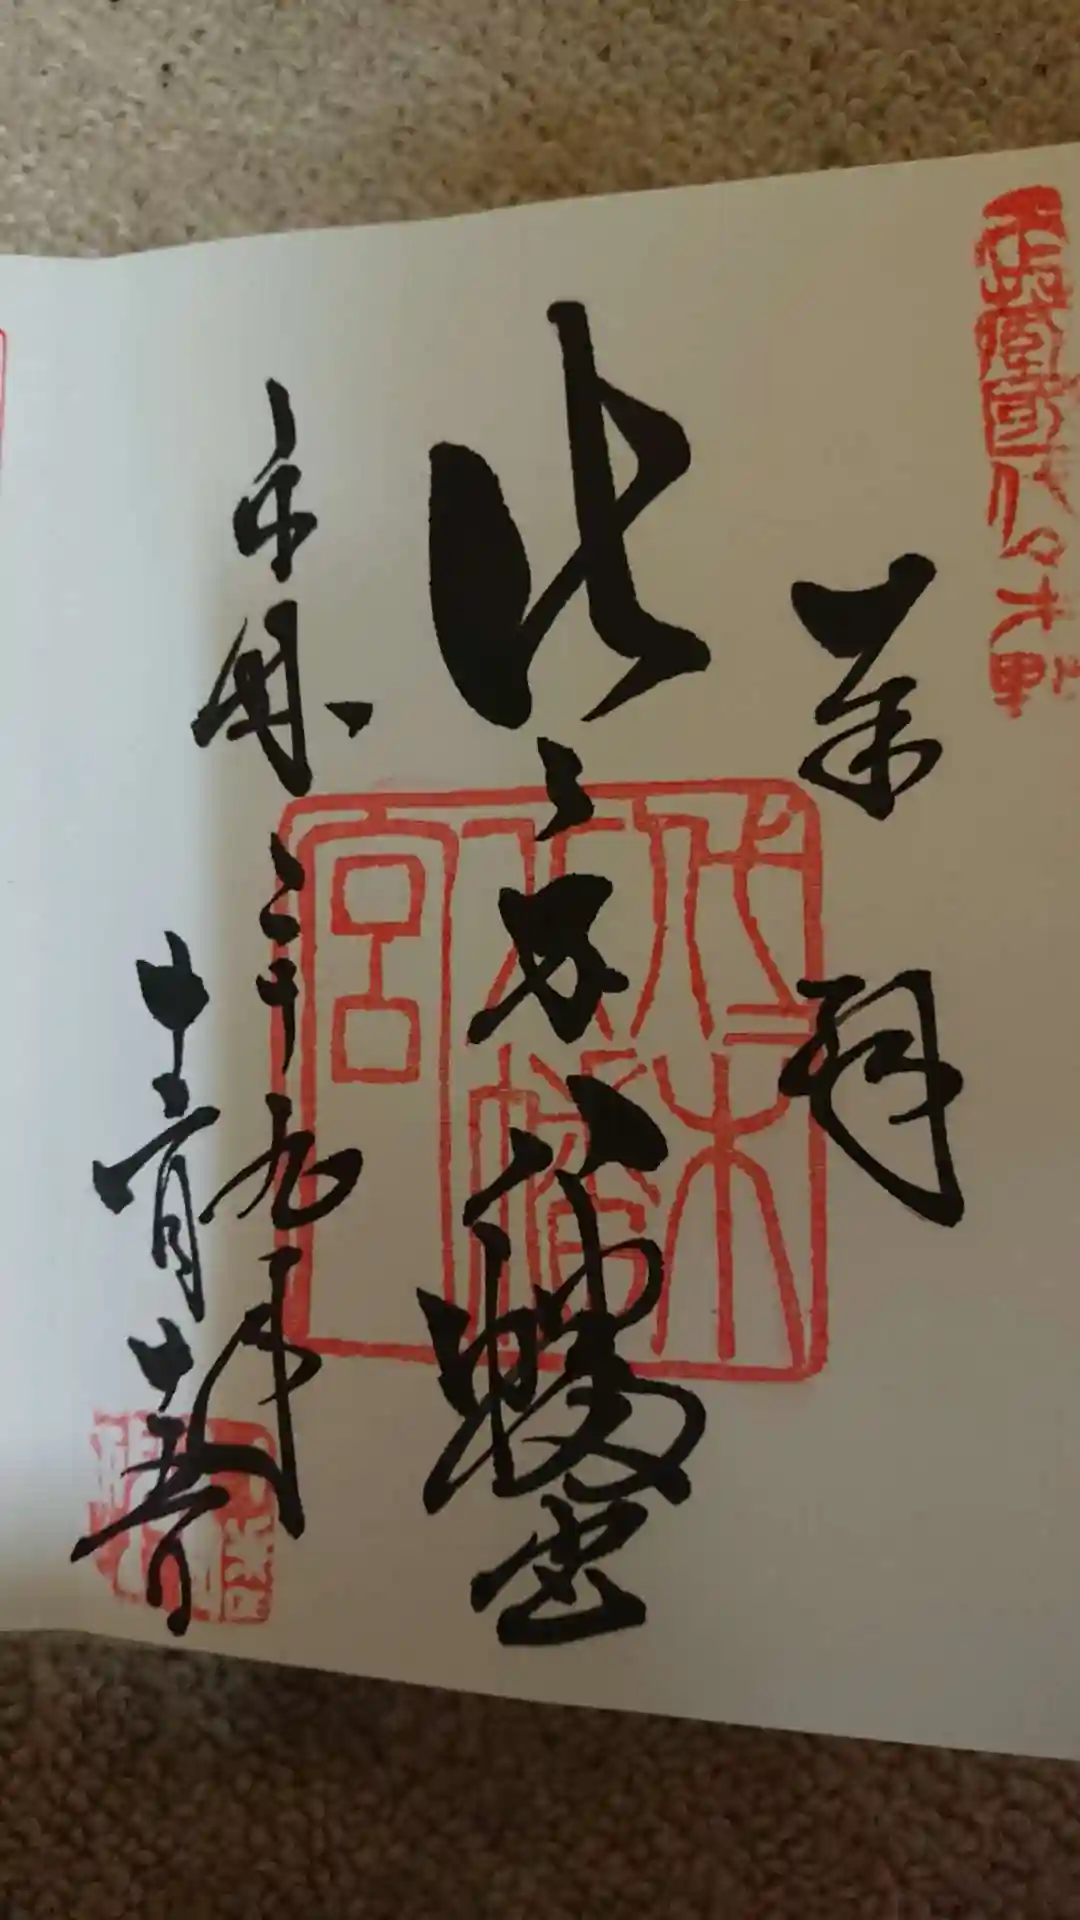 武蔵國代々木野
奉拝
代々木八幡宮
代々木八幡宮
平成二十九年
十二月十五日